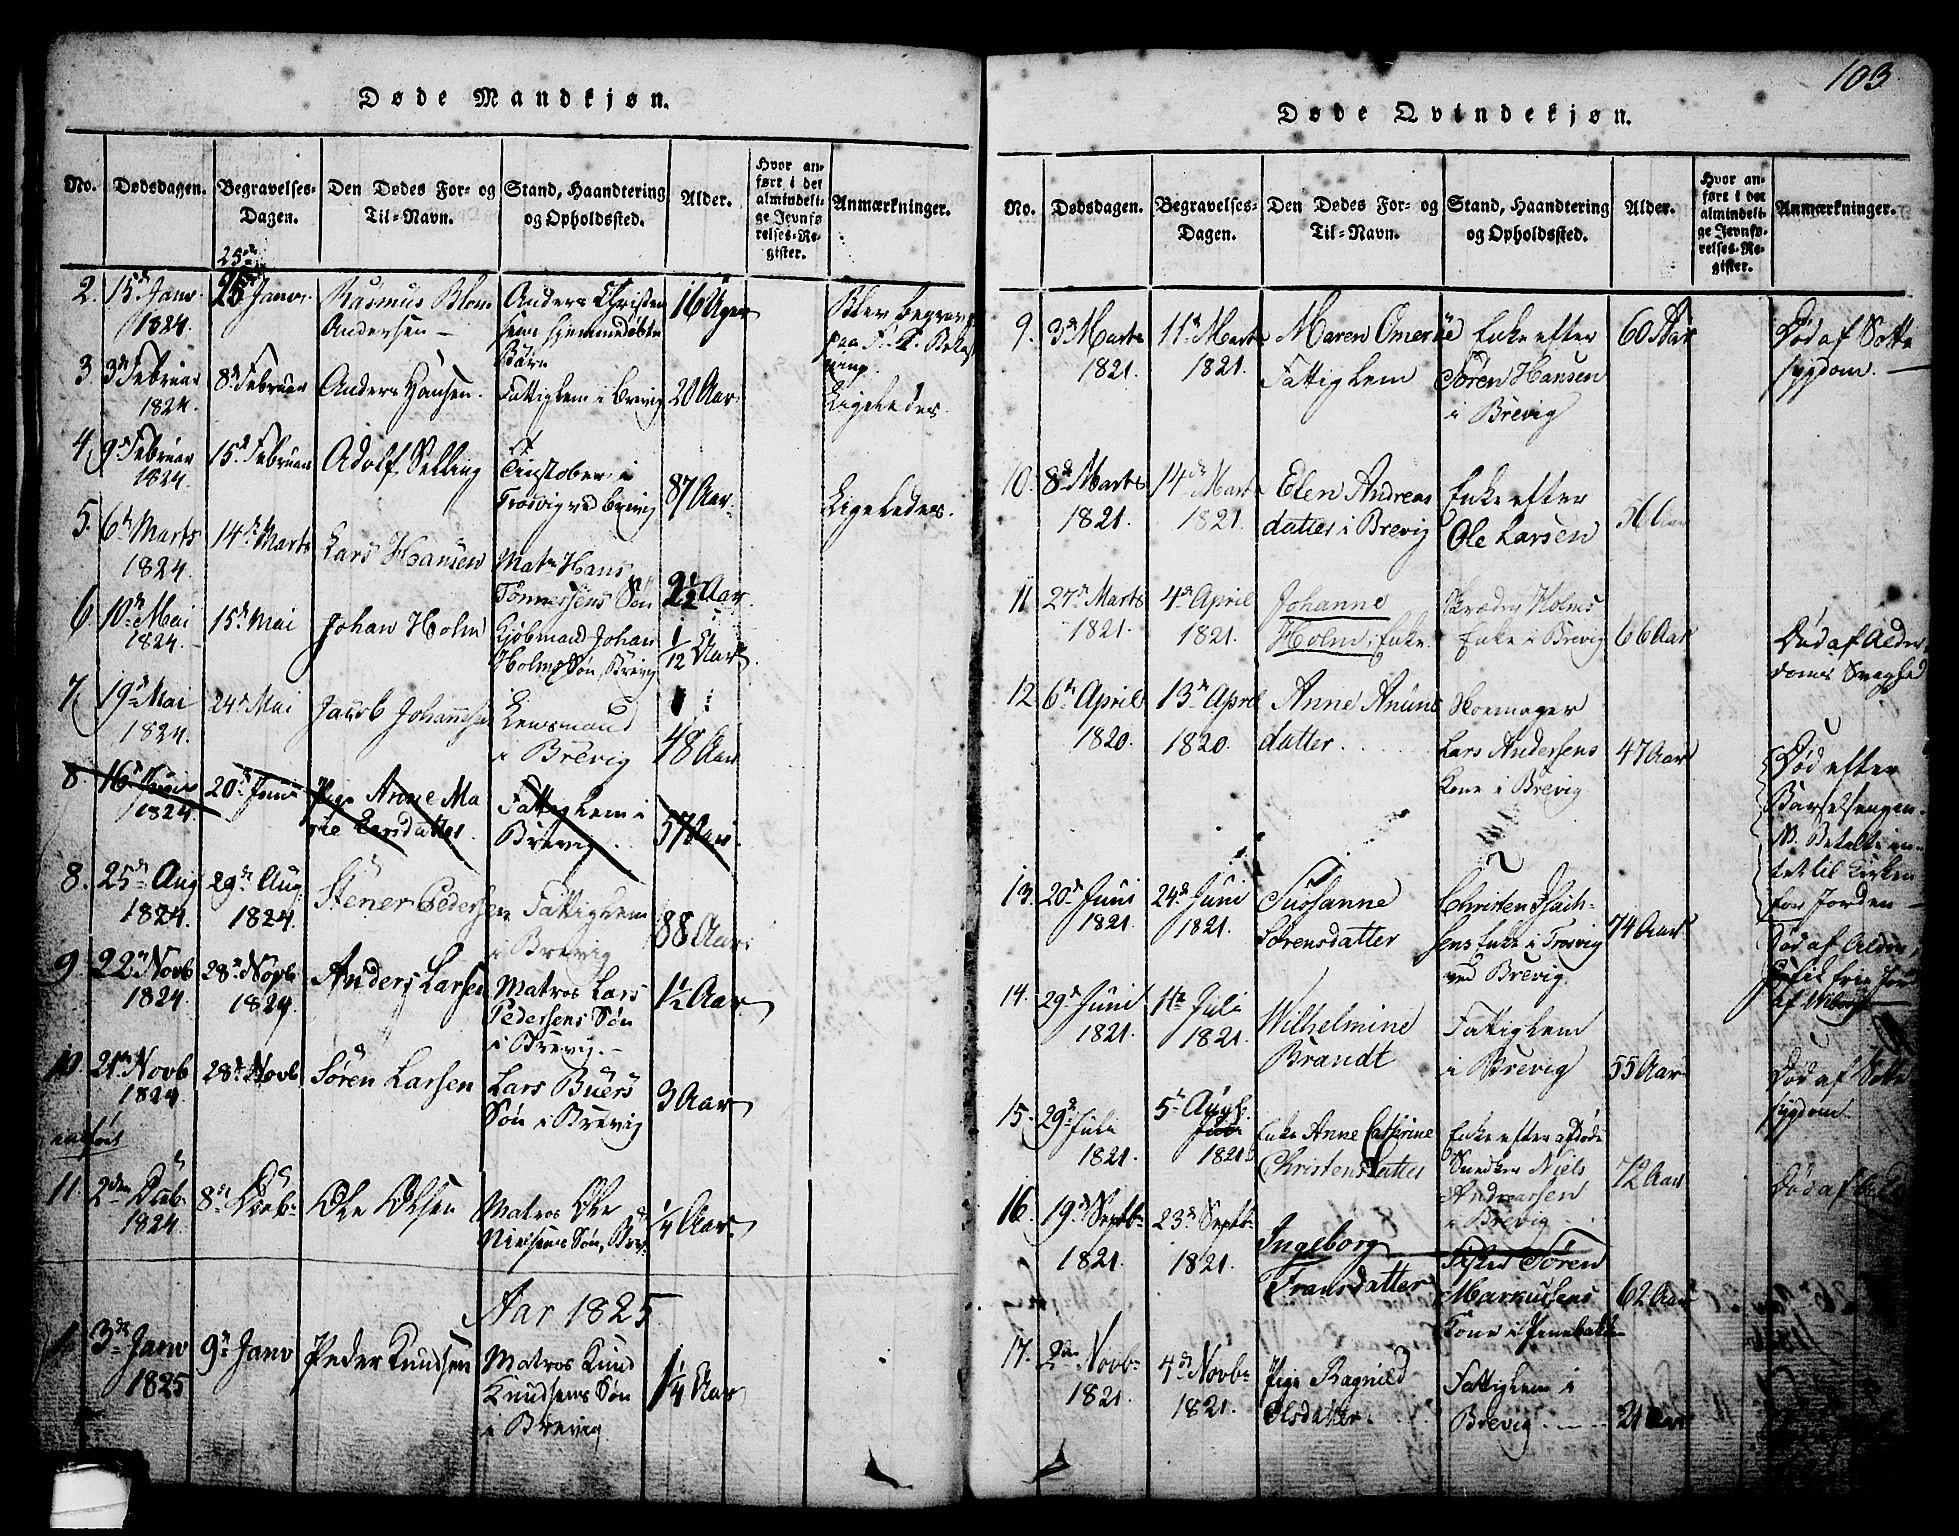 103
Døde Mandkjøn.
No. Dødsdagen. Begravelses-Dagen. Den Dødes For- og Til-Navn. Stand, Haandtering og Opholdssted. Alder. Hvor anført i det almindelige Jevnførelses-Register. Anmærkninger.
2. 15de Janv. 1824. 25de Janv. Rasmus Blom Andersen Anders Christensens hjemmedøbte Barn 16 Uger Blev begravet paa
3. 3de Februar 1824. 8de Februar Anders Hansen. Fattiglem i Brevig 20 Aar. Ligeledes.
4. 9de Februar 1824. 15de Februar Adolf Selling Tinstøber i Trosvig ved Brevig 87 Aar. Ligeledes.
5. 6te Marts 1824. 14de Marts Lars Hansen Matr. Hans Tønnessens Søn 2½ Aar.
6. 10de Mai 1824. 15de Mai Johan Holm Kjøbmand Johan Holms Søn, Brevig 1/12 Aar.
7. 19de Mai 1824. 24de Mai Jacob Johannsen Lensmand i Brevig 48 Aar
8. 16de Juni 1824. 20de Juni Pige Anne Marie Larsdatter. Fattiglem i Brevig. 57 Aar.
8. 25de Aug 1824. 29de Aug. 1824. Stener Pedersen Fattiglem i Brevig 88 Aar.
9. 22de Novb 1824. 28de Novb 1824. Anders Larsen Matros Lars Pedersens Søn i Brevig. 1½ Aar
10. 21de Novb 1824. 28de Novb Søren Larsen Lars Buers Søn i Brevig 3 Aar
11. 2den Decb. 1824. 8de Decb. Ole Olsen Matros Ole Nielsens Søn, Brev. ¼ Aar.
Aar 1825
1. 3de Janv 1825 9de Janv Peder Knudsen Matros Knud Knudsens Søn i Brevig 1¼ Aar
Døde Qvindekjøn.
No. Dødsdagen. Begravelses-Dagen. Den Dødes For- og Til-Navn. Stand, Haandtering og Opholdssted. Alder. Hvor anført i det almindelige Jevnførelses-Register. Anmærkninger.
9. 3de Marts 1821. 11te Marts 1821. Maren Omeröe Fattiglem Enke efter Sören Hansen i Brevig 60 Aar Död af Sottesygdom.
10. 8de Marts 1821. 14de Marts 1821. Elen Andreasdatter i Brevig Enke efter Ole Larsen
11. 27de Marts 1821. 4de April 1821. Johanne Holm, Enke. Skræder Holms Enke i Brevig 66 Aar Död af Alderdoms Svaghed
12. 6te April 1820. 13de April 1820. Anne Anunsdatter. Skoemager Lars Andersens Kone i Brevig 47 Aar Död efter Barselsengen. NB. Betalte intet til Kirken for Jorden
13. 20de Juni 1821. 24de Juni 1821. Susanne Sörensdatter Christen Isachsens Enke i Trosvig ved Brevig 74 Aar. Död af Alder, fik frie Jord af
14. 29de Juni 1821. 1te Juli 1821. Wilhelmine Brandt Fattiglem i Brevig 55 Aar Död af Sottesygdom.
15. 29de Juli 1821. 5te Augt. Juli 1821. Enke Anne Catherine Christensdatter Enke efter afdöde Snedker Niels Andreassen i Brevig 72 Aar Död af
16. 19de Septb. 1821. 23de Septb. 1821. Ingeborg Fransdatter Fisker Sören Markusens Kone i 62 Aar
17. 2den Novb. 1821. 4de Novb. 1821. Pige Ragnild Olsdatter. Fattiglem i Brevig. 21 Aar